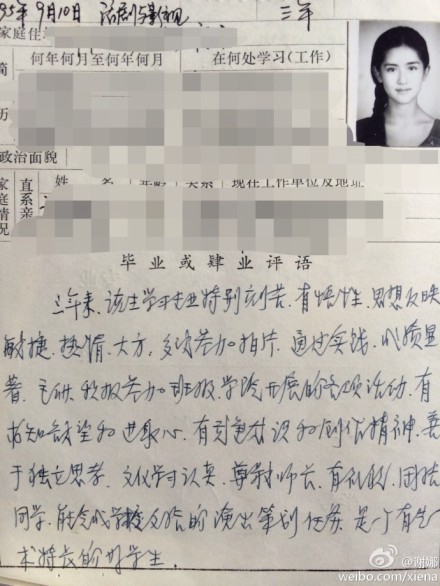 95年9月10日 话剧与影视 三年
家庭住
何年何月至何年何月 在何处学习(工作)
简
历
政治面貌
家庭情况 直系亲 姓 名 年龄 关系 现在工作单位及地址
毕业或肄业评语
三年来,该生学习专业特别刻苦,有悟性,思想反映
敏捷,热情,大方,多次参加拍片,通过实践,成绩显
著,主动、积极参加班级、学院开展的各项活动,有
求知欲望和进取心,有刻意意识和创作精神,善
于独立思考,文化学习认真,尊敬师长,有礼貌,团结
同学,能完成学校交给的演出策划任务,是一个有艺
术特长的好学生.
@谢娜
weibo.com/xiena